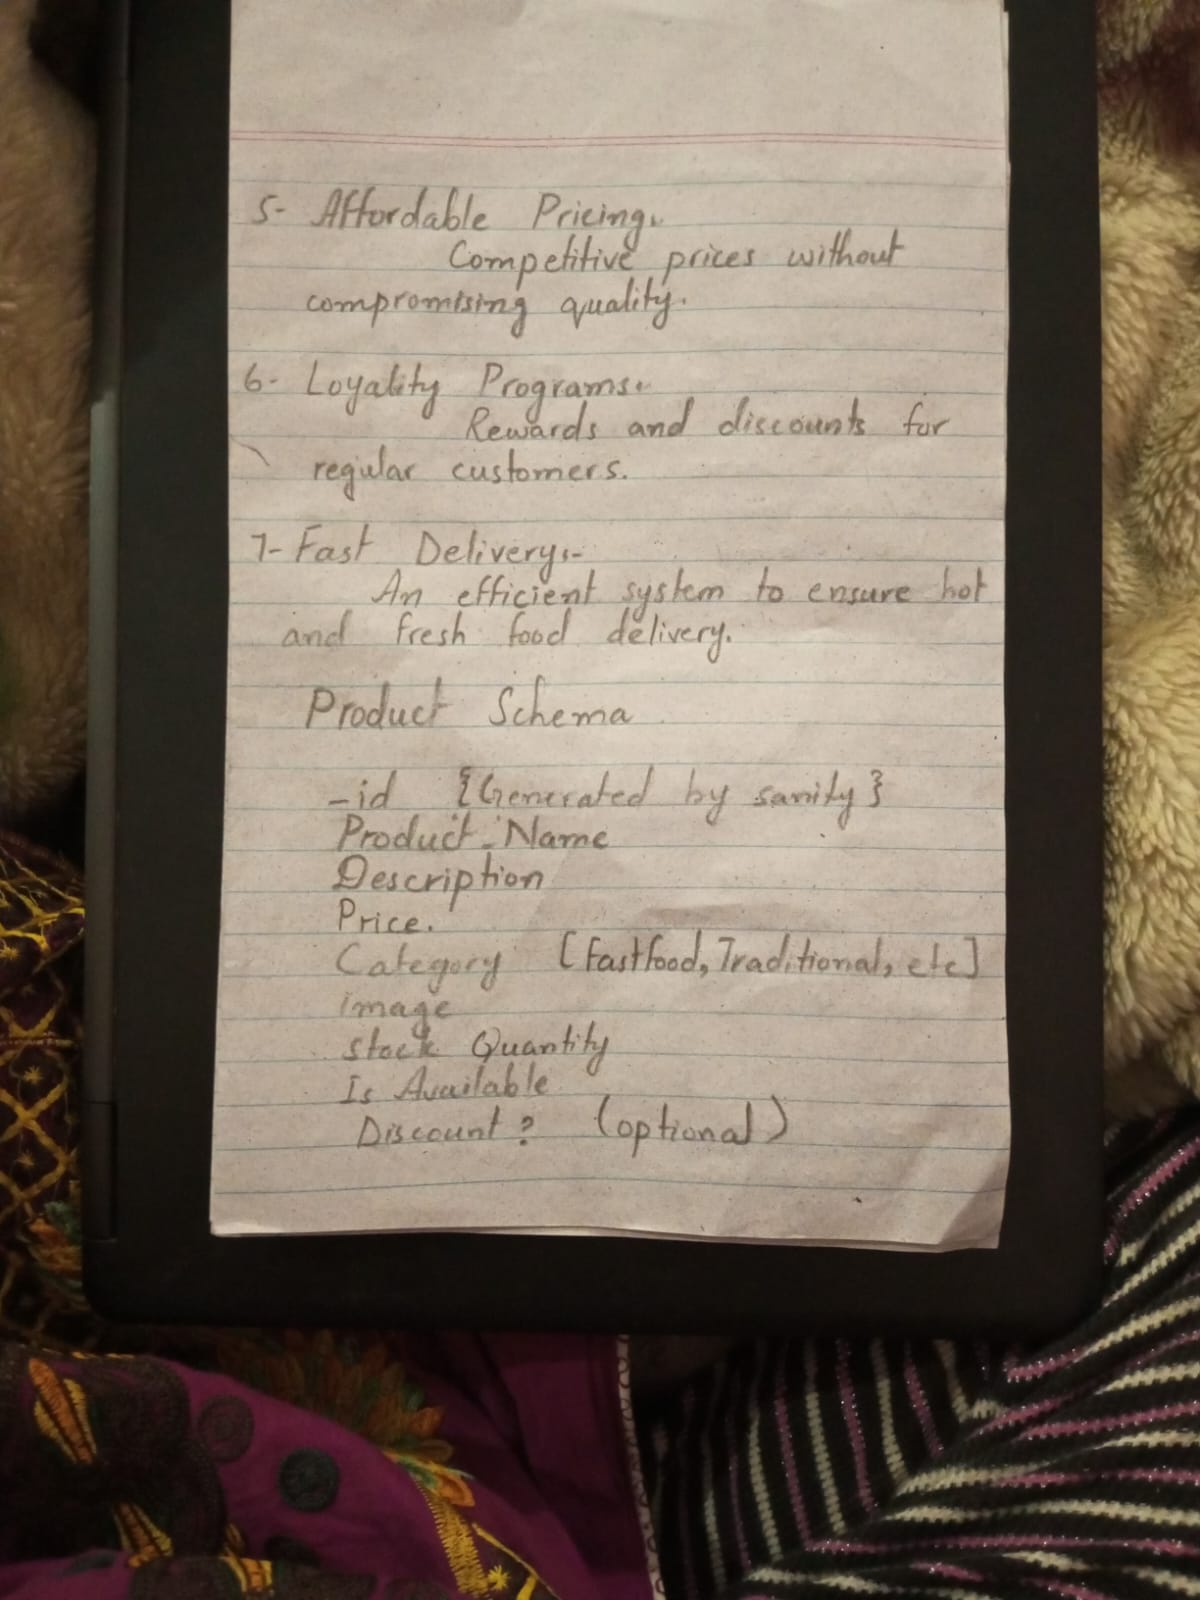 5- Affordable Pricing:
Competitive prices without
compromising quality.
6- Loyality Programs:
Rewards and discounts for
regular customers.
7- Fast Delivery:-
An efficient system to ensure hot
and fresh food delivery.
Product Schema
-id {Generated by sanity}
Product-Name
Description
Price.
Category [Fastfood, Traditional, etc]
image
stock Quantity
Is Available
Discount? (optional)